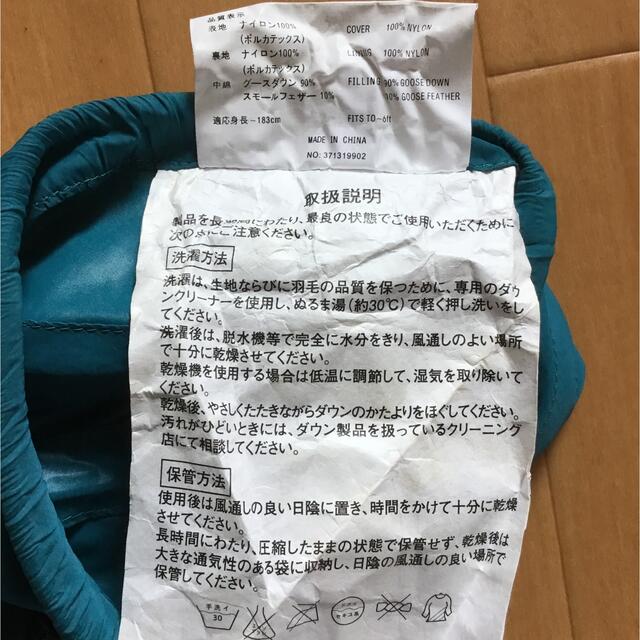 品質表示
表地 ナイロン100% COVER 100% NYLON
(ポルカテックス)
裏地 ナイロン100% LINING 100% NYLON
(ポルカテックス)
中綿 グースダウン 90% FILLING 90% GOOSE DOWN
スモールフェザー 10% 10% GOOSE FEATHER
適応身長-183cm FITS TO-6ft
MADE IN CHINA
NO: 371319902
取扱説明
製品を長期にわたり、最良の状態でご使用いただくために
次のことにご注意ください。
洗濯方法
洗濯は、生地ならびに羽毛の品質を保つために、専用のダウ
ンクリーナーを使用し、ぬるま湯(約30℃)で軽く押し洗いをし
てください。
洗濯後は、脱水機等で完全に水分をきり、風通しのよい場所
で十分に乾燥させてください。
乾燥機を使用する場合は低温に調節して、湿気を取り除いて
ください。
乾燥後、やさしくたたきながらダウンのかたよりをほぐしてください。
汚れがひどいときには、ダウン製品を扱っているクリーニング
店にて相談してください。
保管方法
使用後は風通しの良い日陰に置き、時間をかけて十分に乾燥
させてください。
長時間にわたり、圧縮したままの状態で保管せず、乾燥後は
大きな通気性のある袋に収納し、日陰の風通しの良い場所で
保管してください。
手洗イ
30
セキユ系